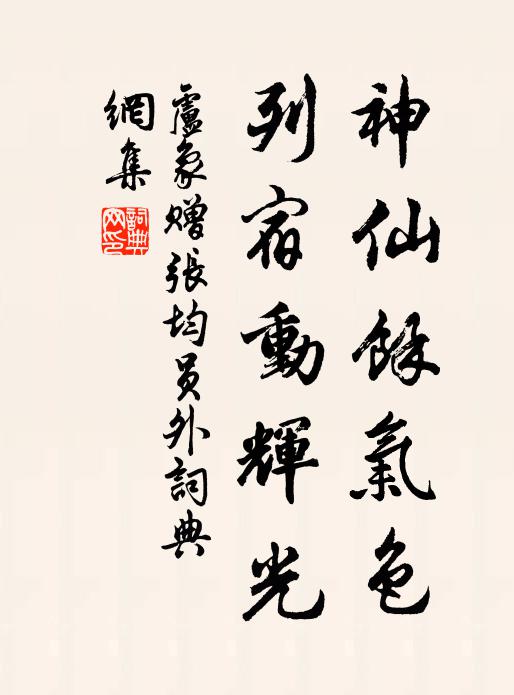 神仙餘氣色
列宿動輝光
盧象贈張均員外詞典
網集
詞典網印